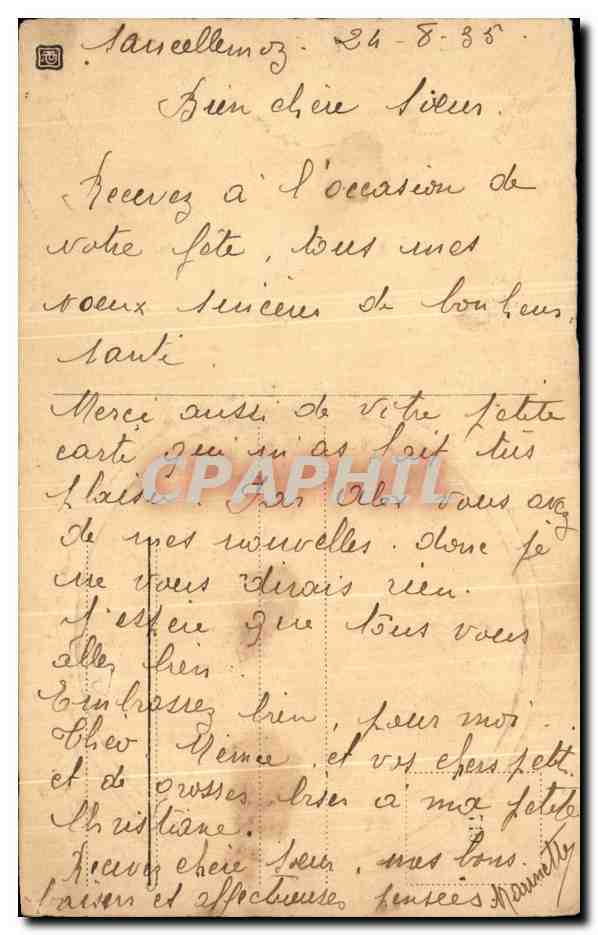 Sancellemoz. 24-8-35.
Bien chère Sœur.
Recevez à l'occasion de
votre fête, tous mes
voeux sincères de bonheur,
santé.
Merci aussi de votre petite
carte qui m'as fait très
plaisir. Par Alex vous avez
de mes nouvelles. donc je
ne vous dirais rien.
J'espère que tous vous
allez bien.
Embrassez bien, pour moi
Théo, Mémée, et vos chers petits.
et de grosses bises à ma petite
Christiane.
Recevez chère Sœur, mes bons
baisers et affectueuses pensées
CPAPHIL